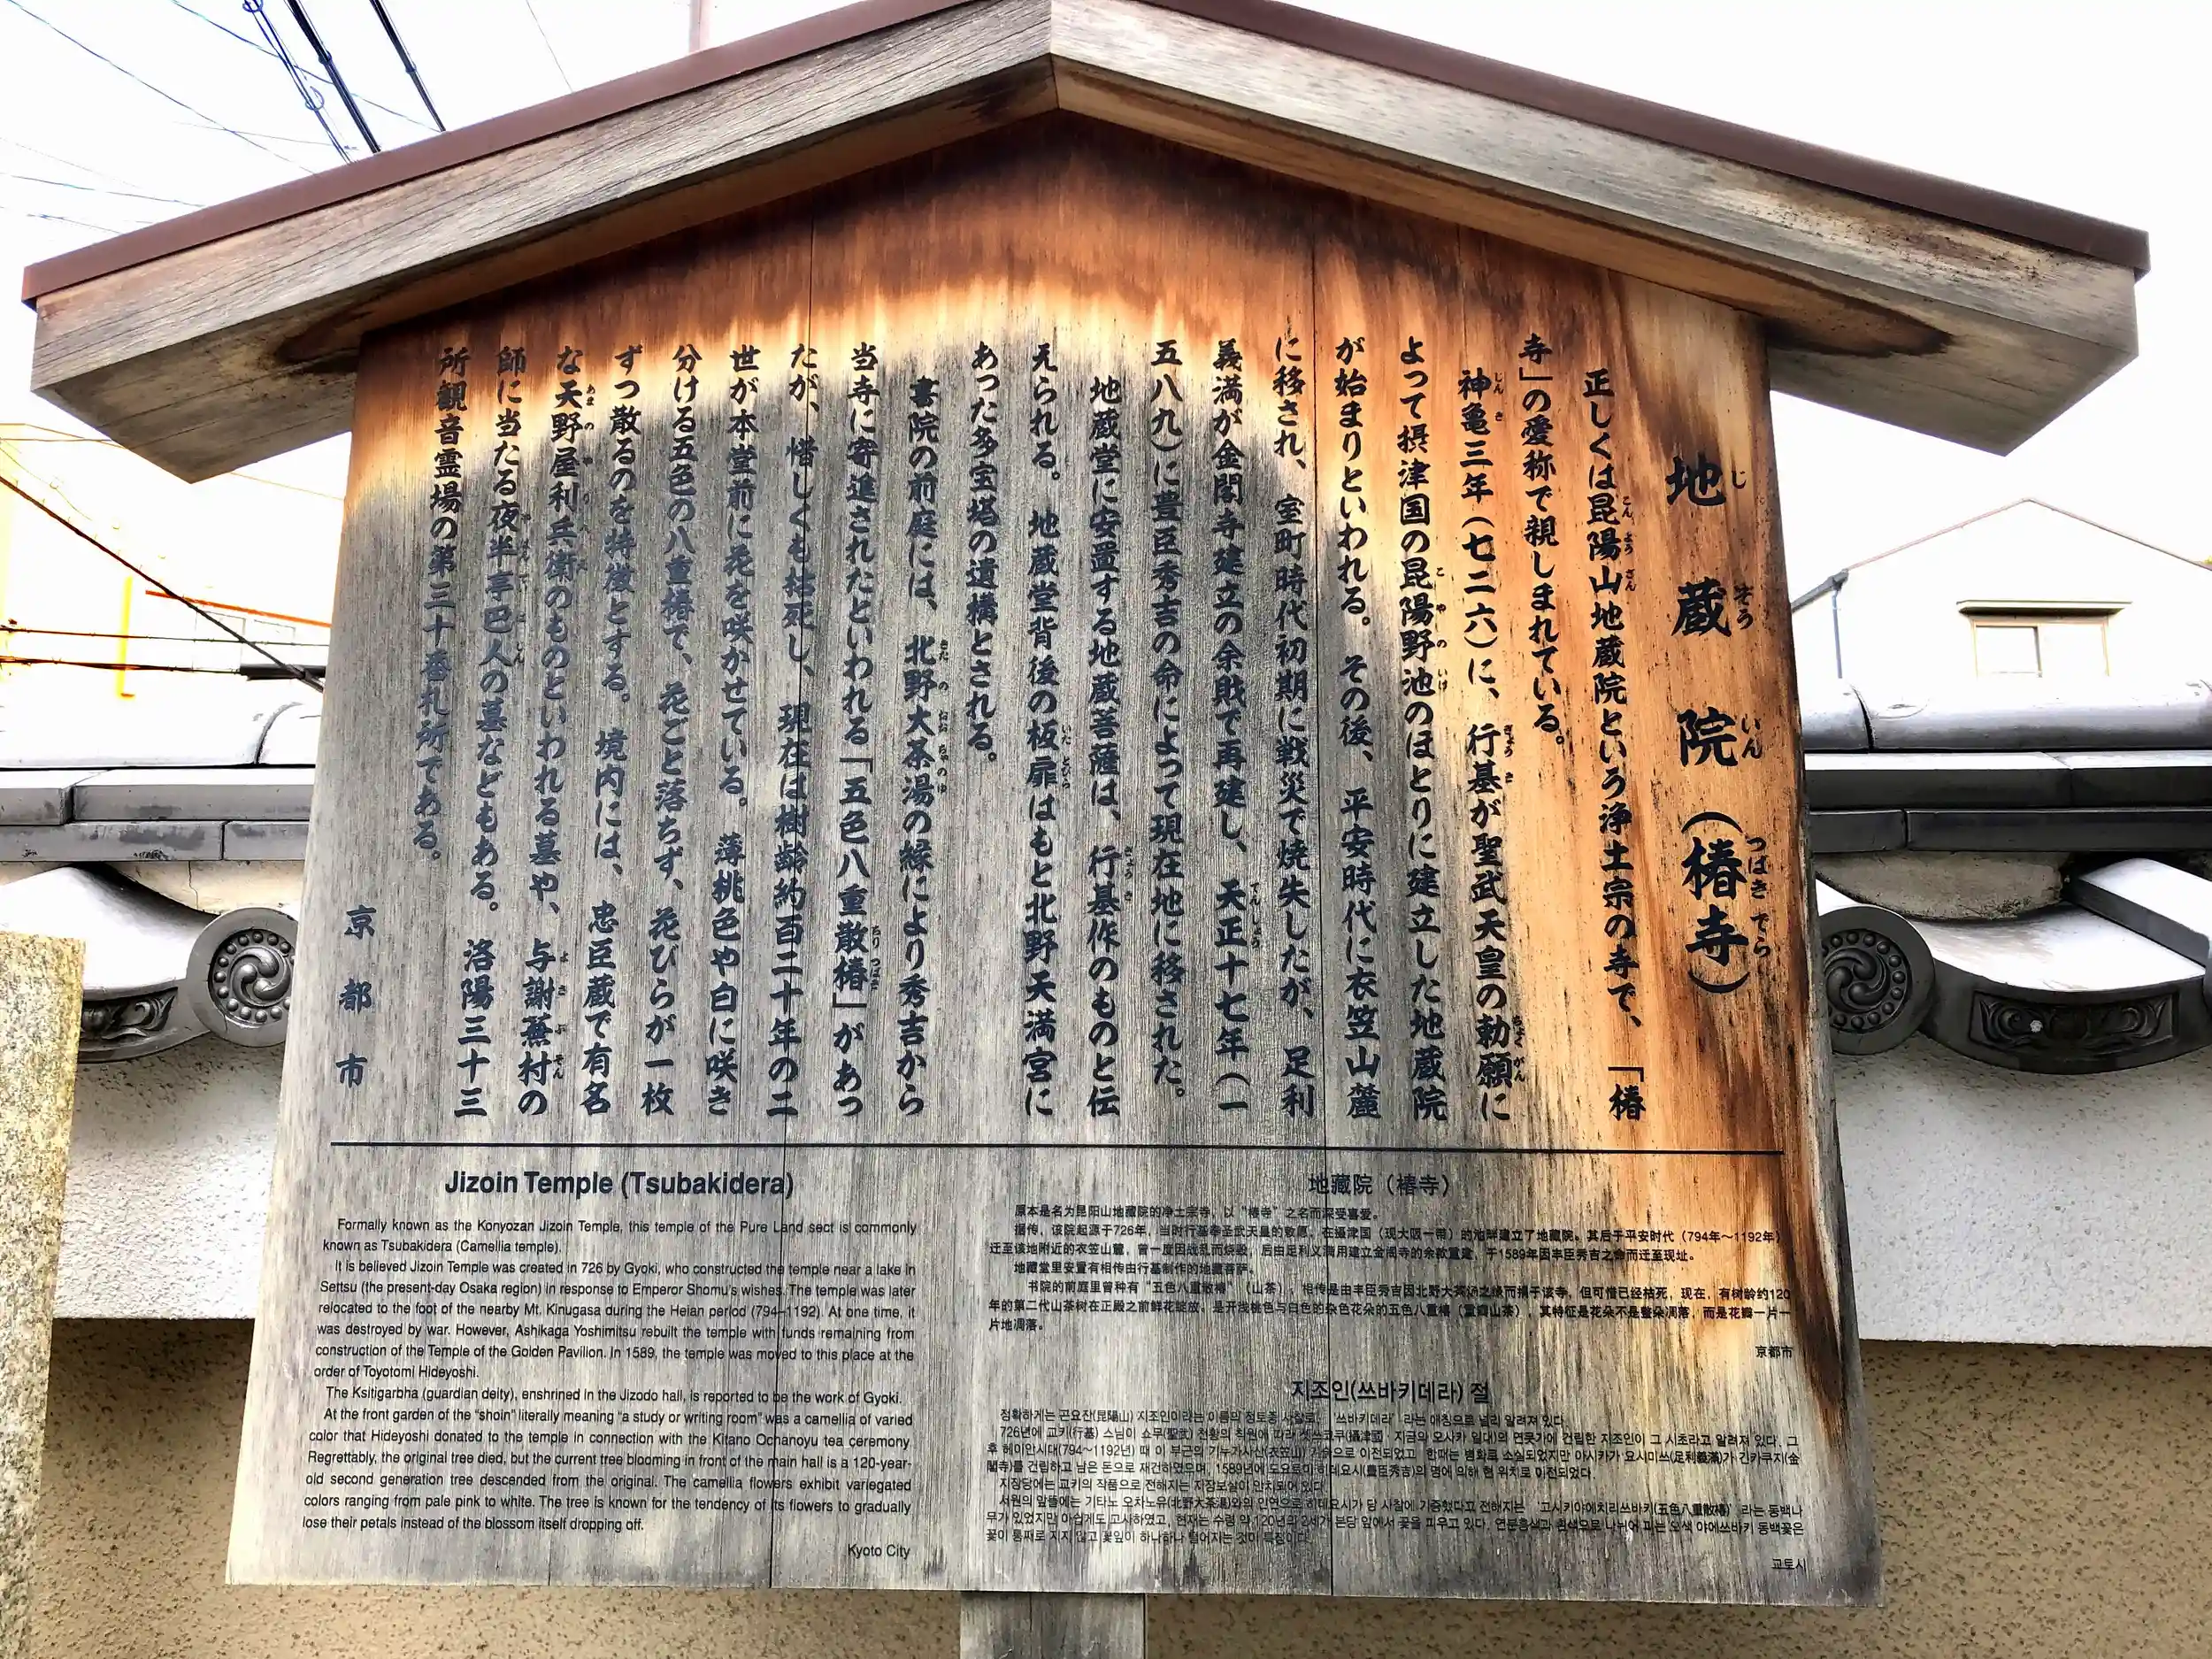 地蔵院（椿寺）
正しくは昆陽山地蔵院という浄土宗の寺で、「椿
寺」の愛称で親しまれている。
神亀三年（七二六）に、行基が聖武天皇の勅願に
よって摂津国の昆陽野池のほとりに建立した地蔵院
が始まりといわれる。その後、平安時代に衣笠山麓
に移され、室町時代初期に戦災で焼失したが、足利
義満が金閣寺建立の余財で再建し、天正十七年（一
五八九）に豊臣秀吉の命によって現在地に移された。
地蔵堂に安置する地蔵菩薩は、行基作のものと伝
えられる。地蔵堂背後の板扉はもと北野天満宮に
あった多宝塔の遺構とされる。
書院の前庭には、北野大茶湯の縁により秀吉から
当寺に寄進されたといわれる「五色八重散椿」があっ
たが、惜しくも枯死し、現在は樹齢約百二十年の二
世が本堂前に花を咲かせている。薄桃色や白に咲き
分ける五色の八重椿で、花ごと落ちず、花びらが一枚
ずつ散るのを特徴とする。境内には、忠臣蔵で有名
な天野屋利兵衛のものといわれる墓や、与謝蕪村の
師に当たる夜半亭巴人の墓などもある。洛陽三十三
所観音霊場の第三十番札所である。
京都市
Jizoin Temple (Tsubakidera)
Formally known as the Konyozan Jizoin Temple, this temple of the Pure Land sect is commonly
known as Tsubakidera (Camellia temple).
It is believed Jizoin Temple was created in 726 by Gyoki, who constructed the temple near a lake in
Settsu (the present-day Osaka region) in response to Emperor Shomu's wishes. The temple was later
relocated to the foot of the nearby Mt. Kinugasa during the Heian period (794–1192). At one time, it
was destroyed by war. However, Ashikaga Yoshimitsu rebuilt the temple with funds remaining from
construction of the Temple of the Golden Pavilion. In 1589, the temple was moved to this place at the
order of Toyotomi Hideyoshi.
The Ksitigarbha (guardian deity), enshrined in the Jizodo hall, is reported to be the work of Gyoki.
At the front garden of the “shoin” literally meaning “a study or writing room” was a camellia of varied
color that Hideyoshi donated to the temple in connection with the Kitano Ochanoyu tea ceremony
Regrettably, the original tree died, but the current tree blooming in front of the main hall is a 120-year-
old second generation tree descended from the original. The camellia flowers exhibit variegated
colors ranging from pale pink to white. The tree is known for the tendency of its flowers to gradually
lose their petals instead of the blossom itself dropping off.
Kyoto City
地藏院（椿寺）
原本是名为昆阳山地藏院的净土宗寺，以“椿寺”之名而深受喜爱。
据传，该院起源于726年，当时行基奉圣武天皇的敕愿，在摄津国（现大阪一带）的池畔建立了地藏院。其后于平安时代（794年～1192年）
迁至该地附近的衣笠山麓，曾一度因战乱而烧毁，后由足利义满用建立金阁寺的余款重建，于1589年因丰臣秀吉之命而迁至现址。
地藏堂里安置有相传由行基制作的地藏菩萨。
书院的前庭里曾种有“五色八重散椿”（山茶），相传是由丰臣秀吉因北野大茶汤之缘而捐于该寺，但可惜已经枯死，现在，有树龄约120
年的第二代山茶树在正殿之前鲜花绽放。是开浅桃色与白色的杂色花朵的五色八重椿（重瓣山茶），其特征是花朵不是整朵凋落，而是花瓣一片一
片地凋落。
京都市
지조인(쓰바키데라) 절
정확하게는 곤요잔(昆陽山) 지조인이라는 이름의 정토종 사찰로, ‘쓰바키데라’라는 애칭으로 널리 알려져 있다.
726년에 교키(行基) 스님이 쇼무(聖武) 천황의 칙원에 따라 셋쓰쿠쿠(攝津國・지금의 오사카 일대)의 연못가에 건립한 지조인이 그 시초라고 알려져 있다. 그
후 헤이안시대(794～1192년) 때 이 부근의 기누가사산(衣笠山) 기슭으로 이전되었고, 한때는 병화로 소실되었지만 아시카가 요시미쓰(足利義滿)가 긴카쿠지(金
閣寺)를 건립하고 남은 돈으로 재건하였으며, 1589년에 도요토미 히데요시(豊臣秀吉)의 명에 의해 현 위치로 이전되었다.
지장당에는 교키의 작품으로 전해지는 지장보살이 안치되어 있다.
서원의 앞뜰에는 기타노 오차노유(北野大茶湯)와의 인연으로 히데요시가 당 사찰에 기증했다고 전해지는 ‘고시키야에치리쓰바키(五色八重散椿)’라는 동백나
무가 있었지만 아쉽게도 고사하였고, 현재는 수령 약 120년의 2세가 본당 앞에서 꽃을 피우고 있다. 연분홍색과 흰색으로 나뉘어 피는 오색 야에쓰바키 동백꽃은
꽃이 통째로 지지 않고 꽃잎이 하나하나 떨어지는 것이 특징이다.
교토시